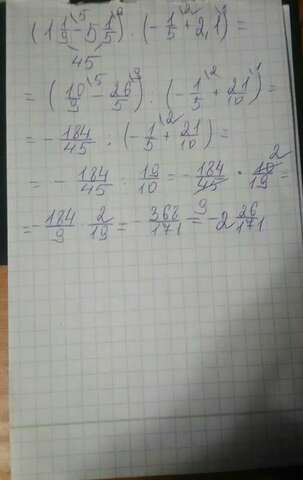 (1 1/9 \5 - 5 1/5 \9) : (- 1/5 \2 + 2,1 \1) =
45
= (10/9 \5 - 26/5 \9) : (- 1/5 \2 + 21/10 \1) =
= - 184/45 : (- 1/5 \2 + 21/10) =
= - 184/45 : 19/10 = - 184/45 9 · 10/19 2 =
= - 184/9 · 2/19 = - 368/171 = - 2 26/171